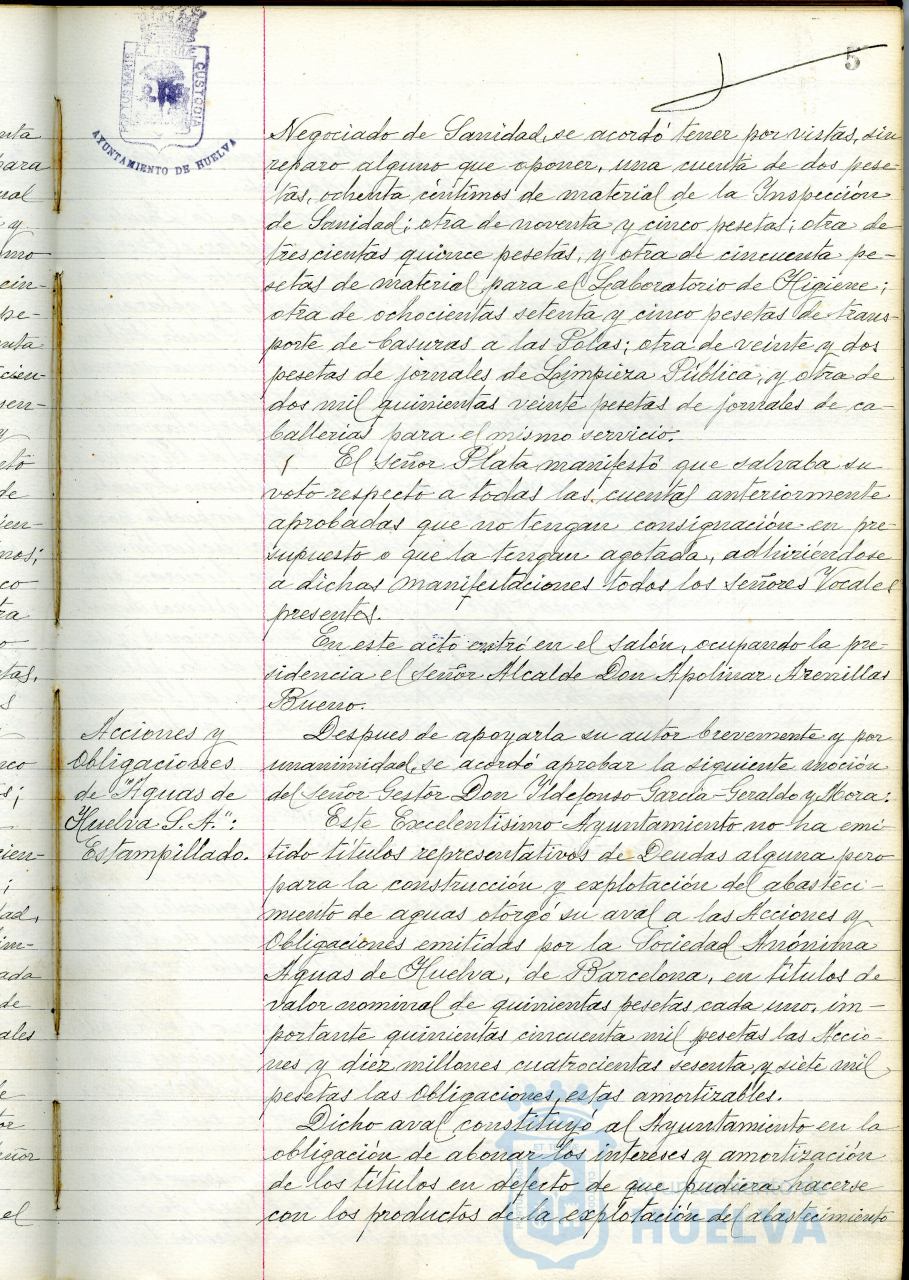 5
PORTUS MARIS
ET TERRE
CUSTODIA
AYUNTAMIENTO DE HUELVA
Negociado de Sanidad, se acordó tener por vistas, sin
reparo alguno que oponer, una cuenta de dos pese-
tas, ochenta céntimos de material de la Inspección
de Sanidad; otra de noventa y cinco pesetas; otra de
trescientas quince pesetas, y otra de cincuenta pe-
setas de material para el Laboratorio de Higiene;
otra de ochocientas setenta y cinco pesetas de trans-
porte de basuras a las Polas; otra de veinte y dos
pesetas de jornales de Limpieza Pública, y otra de
dos mil quinientas veinte pesetas de jornales de ca-
ballerias para el mismo servicio.
El señor Plata manifestó que salvaba su
voto respecto a todas las cuentas anteriormente
aprobadas que no tengan consignación en pre-
supuesto o que la tengan agotada, adhiriéndose
a dichas manifestaciones todos los señores Vocales
presentes.
En este acto entró en el salón, ocupando la pre-
sidencia el señor Alcalde Don Apolinar Arenillas
Bueno.
Acciones y
Obligaciones
de "Aguas de
Huelva S.A.":
Estampillado.
Despues de apoyarla su autor brevemente y por
unanimidad, se acordó aprobar la siguiente moción
del señor Gestor Don Ildefonso García-Geraldo y Mora:
Este Excelentisimo Ayuntamiento no ha emi-
tido títulos representativos de Deudas alguna pero
para la construcción y explotación del abasteci-
miento de aguas otorgó su aval a las Acciones y
Obligaciones emitidas por la Sociedad Anónima
Aguas de Huelva, de Barcelona, en títulos de
valor nominal de quinientas pesetas cada uno, im-
portante quinientas cincuenta mil pesetas las Accio-
nes y diez millones cuatrocientas sesenta y siete mil
pesetas las Obligaciones, estas amortizables.
Dicho aval constituyó al Ayuntamiento en la
obligación de abonar los intereses y amortización
de los títulos en defecto de que pudiera hacerse
con los productos de la explotación del abastecimiento
HUELVA